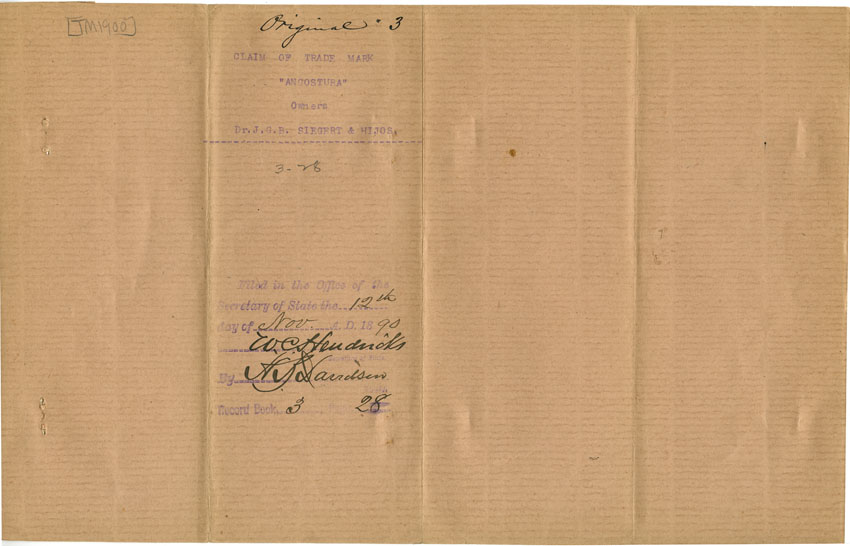 [TM1900]
Original 3
CLAIM OF TRADE MARK
"ANGOSTURA"
Owners
Dr.J.G.B. SIEGERT & HIJOS,
3-28
Filed in the Office of the
Secretary of State the 12th
day of Nov. A.D. 18 90
W.C. Hendricks
By A. J. Davidson
Record Book 3 28